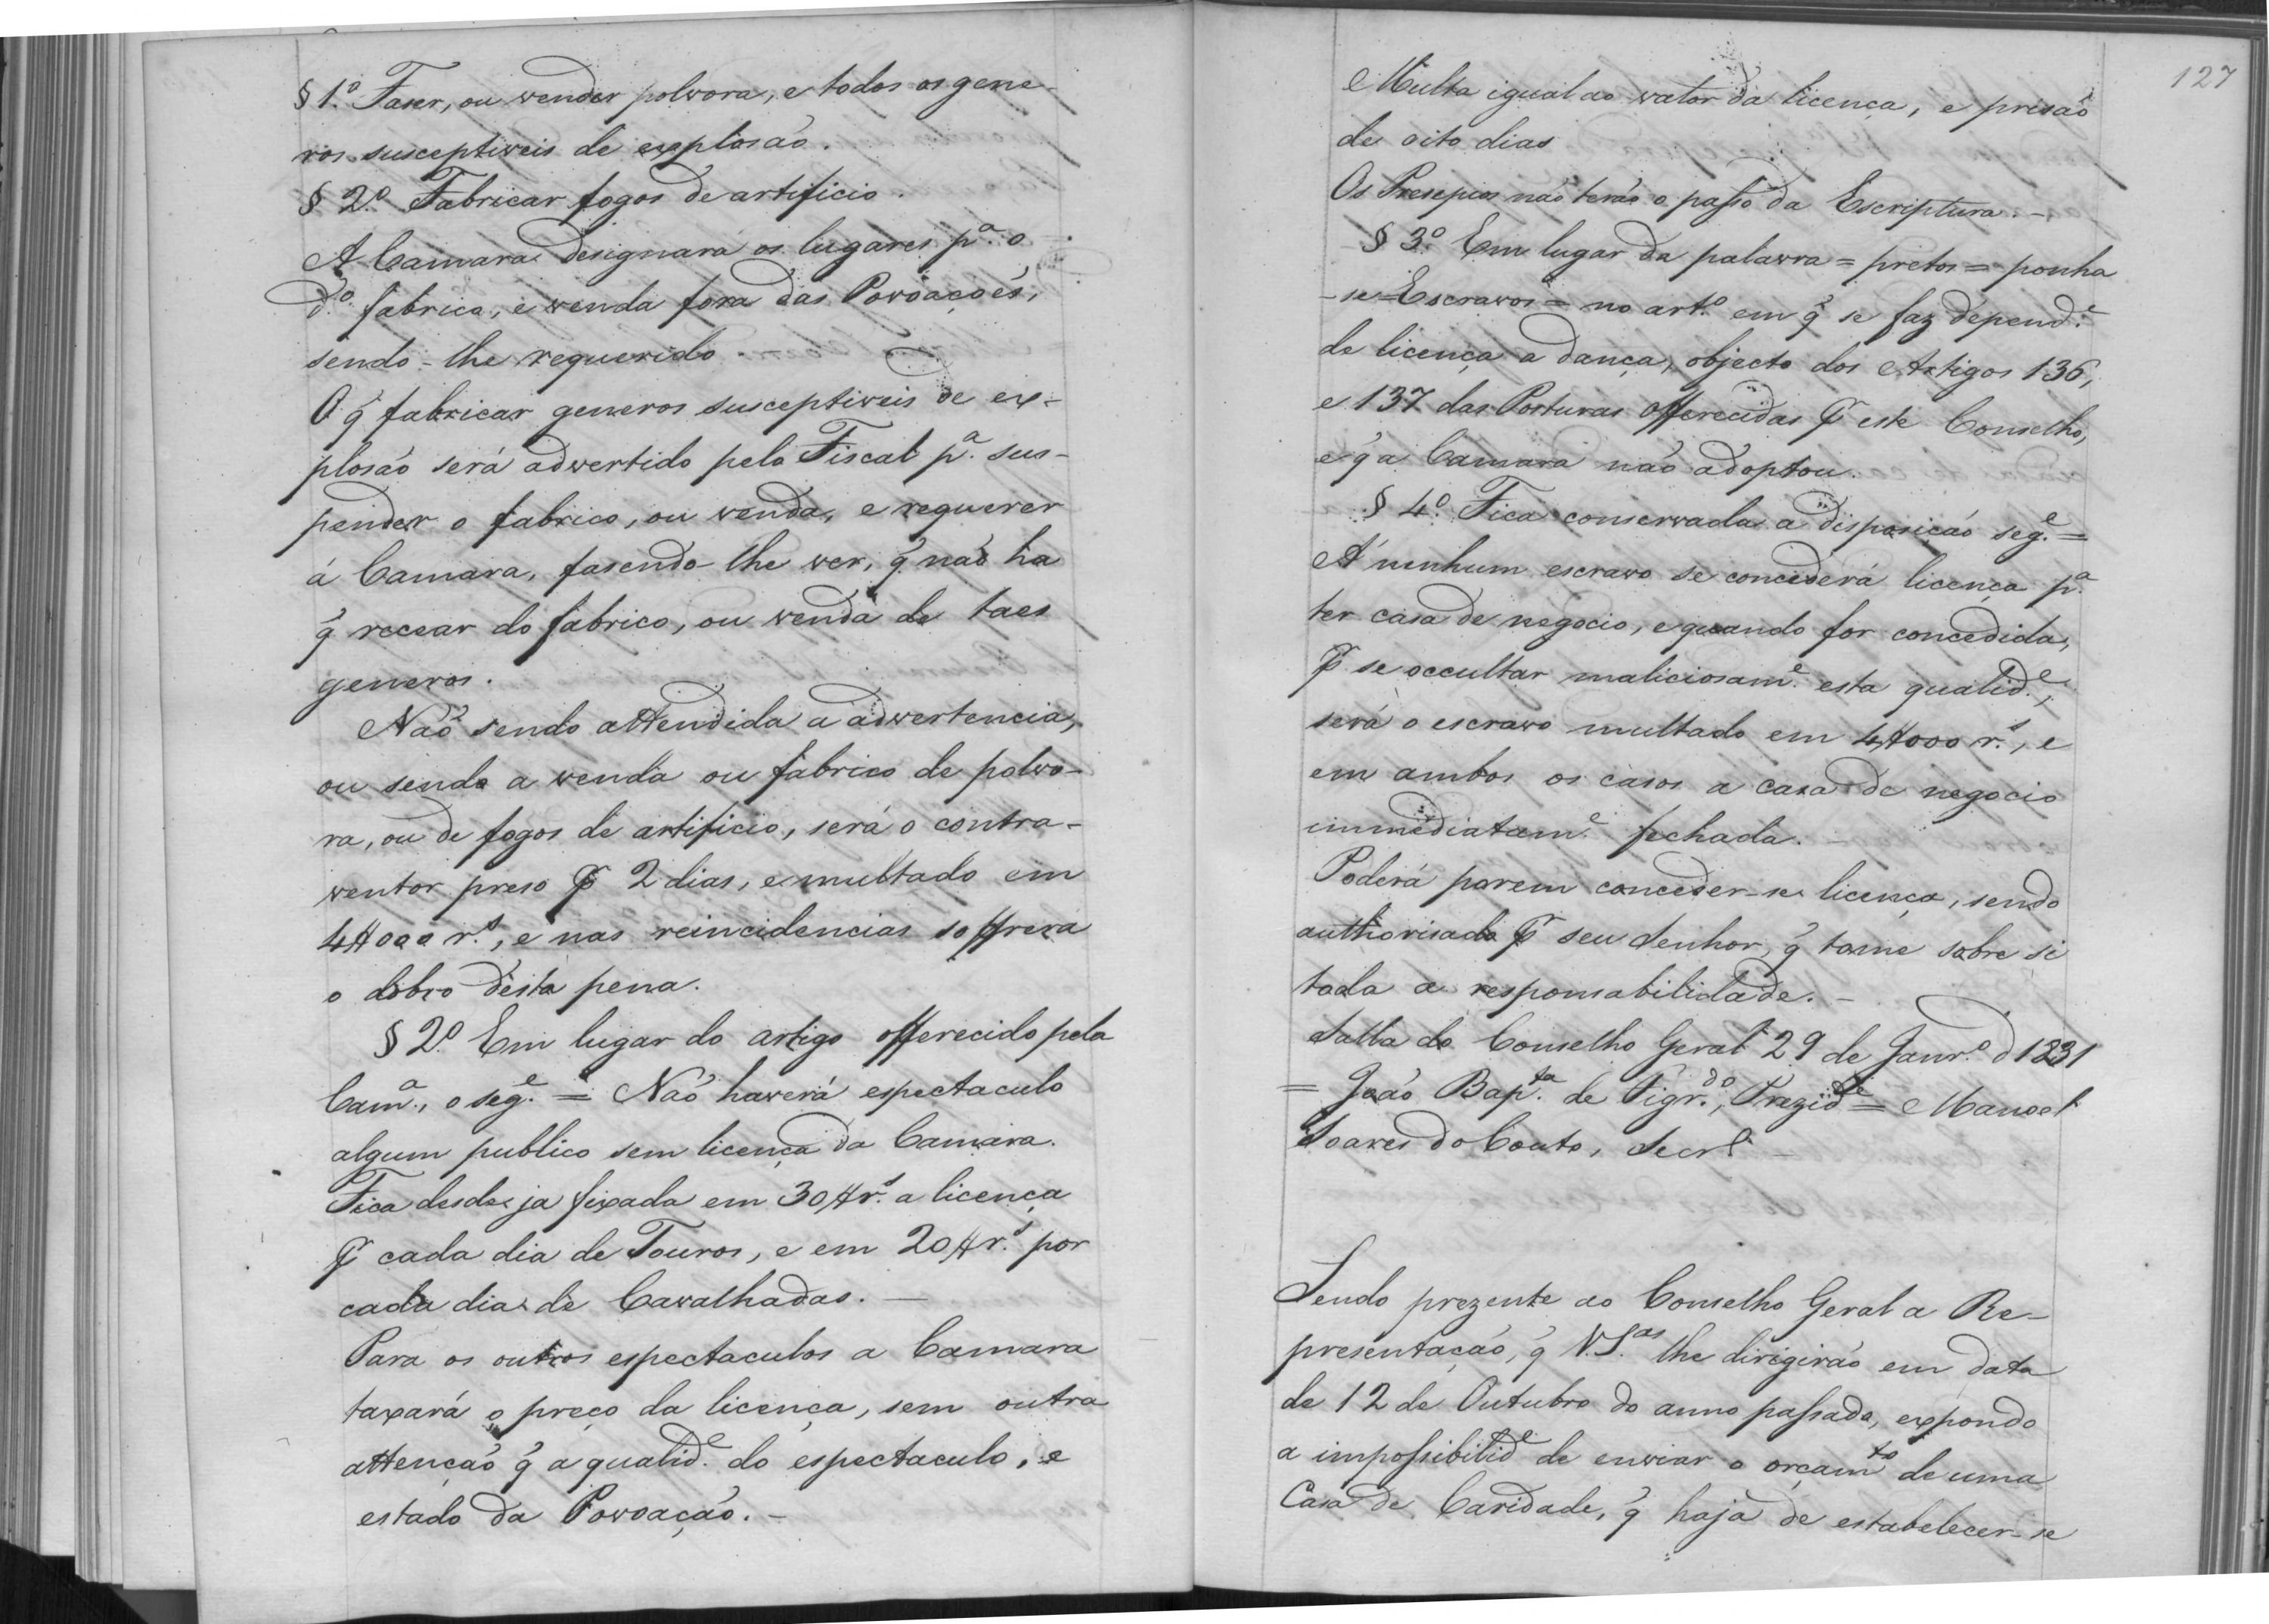 § 1.º Faser, ou vender polvora, e todos os gene-
ros susceptiveis de explosaõ.
§ 2.º Fabricar fogos de artificio.
A Camara designará os lugares p.ª o
d.º fabrico, e venda fora das Povoaçoẽs,
sendo-lhe requerido. -
O q̃ fabricar generos susceptiveis de ex-
plosaõ será advertido pelo Fiscal p.ª sus-
pender o fabrico, ou venda, e requerer
á Camara, fasendo-lhe ver, q̃ naõ ha
q̃ recear do fabrico, ou venda de taes
generos.
Naõ sendo attendida a advertencia,
ou sendo a venda ou fabrico de polvo-
ra, ou de fogos de artificio, será o contra-
ventor preso ꝑ 2 dias, e multado em
4#000 r.s, e nas reincidencias soffrera
o dobro desta pena.
§ 2.º Em lugar do artigo offerecido pela
Cam.ª, o seg.e = Naõ haverá espectaculo
algum publico sem licença da Camara.
Fica desde ja fixada em 30#r.s a licença
ꝑ cada dia de Touros, e em 20#r.s por
cada dia de Cavalhadas. —
Para os outros espectaculos a Camara
taxará o preço da licença, sem outra
attençaõ q̃ a qualid.e do espectaculo, e
estado da Povoaçaõ. -
127
Multa igual ao valor da licença, e prisaõ
de oito dias
Os Presepios naõ teraõ o passo da Escriptura. -
§ 3.º Em lugar da palavra = pretos = ponha
-se = Escravos = no art.º em q̃ se faz depend.e
de licença a dança, objecto dos Artigos 136,
e 137 das Posturas offerecidas ꝑ este Conselho,
e q̃ a Camara naõ adoptou.
§ 4.º Fica conservada a disposiçaõ seg.e =
A' nenhum escravo se concederá licença p.ª
ter casa de negocio, e quando for concedida,
ꝑ se occultar maliciosam.e esta qualid.e,
será o escravo multado em 4#000 r.s, e
em ambos os casos a casa de negocio
immediatam.e fechada. -
Poderá porem conceder-se licença, sendo
authorisado ꝑ seu Senhor, q̃ tome sobre si
toda a responsabilidade. -
Salla do Conselho Geral 29 de Janr.º d 1831
= Joaõ Bap.ta de Figr.do, Prezid.e = Manoel
Soares do Couto, Secr.º -
Sendo prezente ao Conselho Geral a Re-
presentaçaõ, q̃ V.S.as lhe dirigiraõ em data
de 12 de Outubro do anno passado, expondo
a impossibilid.e de enviar o orçam.to de uma
Casa de Caridade, q̃ haja de estabelecer-se